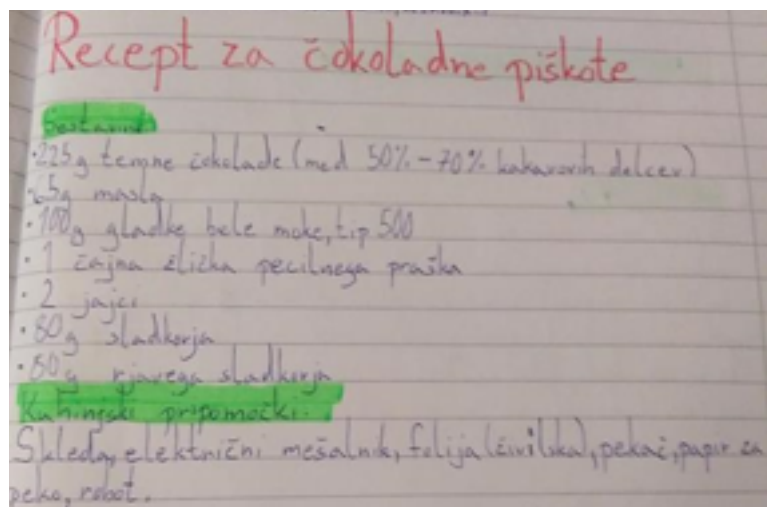 Recept za čokoladne piškote
Sestavine
•225g temne čokolade (med 50% - 70% kakavovih delcev)
•65g masla
•100g gladke bele moke, tip 500
•1 čajna žlička pecilnega praška
•2 jajci
•80g sladkorja
•80g rjavega sladkorja
Kuhinjski pripomočki:
Skleda, električni mešalnik, folija (živilska), pekač, papir za
peko, robot.